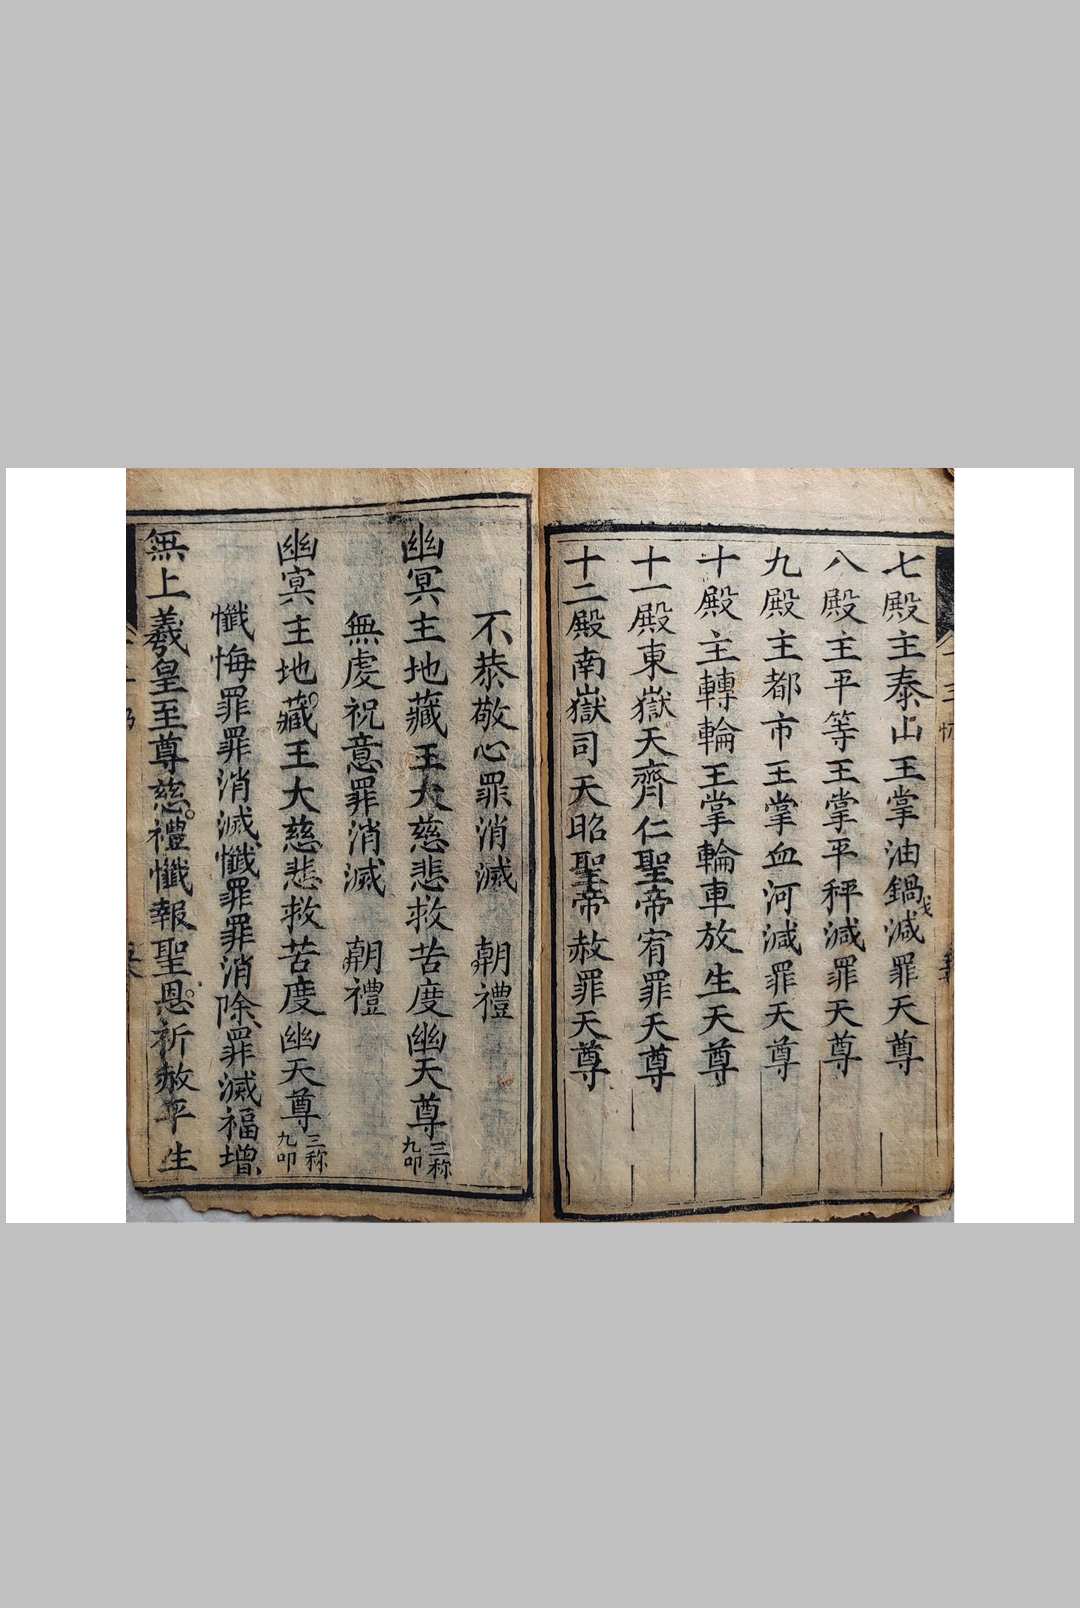 七殿主泰山王掌油鍋滅罪天尊
八殿主平等王掌平秤滅罪天尊
九殿主都市王掌血河滅罪天尊
十殿主轉輪王掌輪車放生天尊
十一殿東嶽天齊仁聖帝宥罪天尊
十二殿南嶽司天昭聖帝赦罪天尊
不恭敬心罪消滅 朝禮
幽冥主地藏王大慈悲救苦度幽天尊三称九叩
無虔祝意罪消滅 朝禮
幽冥主地藏王大慈悲救苦度幽天尊三称九叩
懺悔罪罪消滅懺罪罪消除罪滅福增
無上羲皇至尊慈禮懺報聖恩祈赦平生